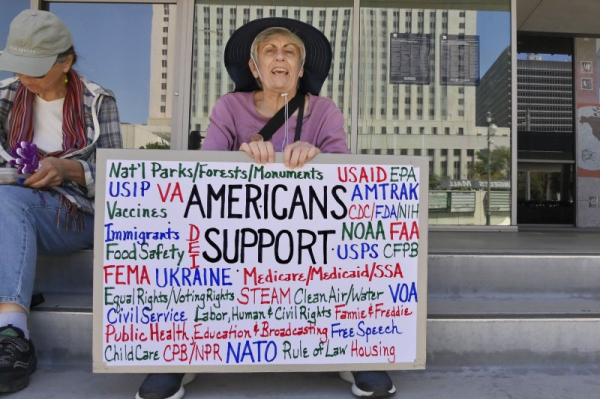 Nat'l Parks/Forests/Monuments USAID EPA
USIP VA AMERICANS AMTRAK
Vaccines CDC/FDA/NIH
DEI
Immigrants SUPPORT NOAA FAA
Food Safety USPS CFPB
FEMA UKRAINE Medicare/Medicaid/SSA
Equal Rights/Voting Rights STEAM Clean Air/Water VOA
Civil Service Labor, Human & Civil Rights Fannie & Freddie
Public Health, Education & Broadcasting Free Speech
Child Care CPB/NPR NATO Rule of Law Housing